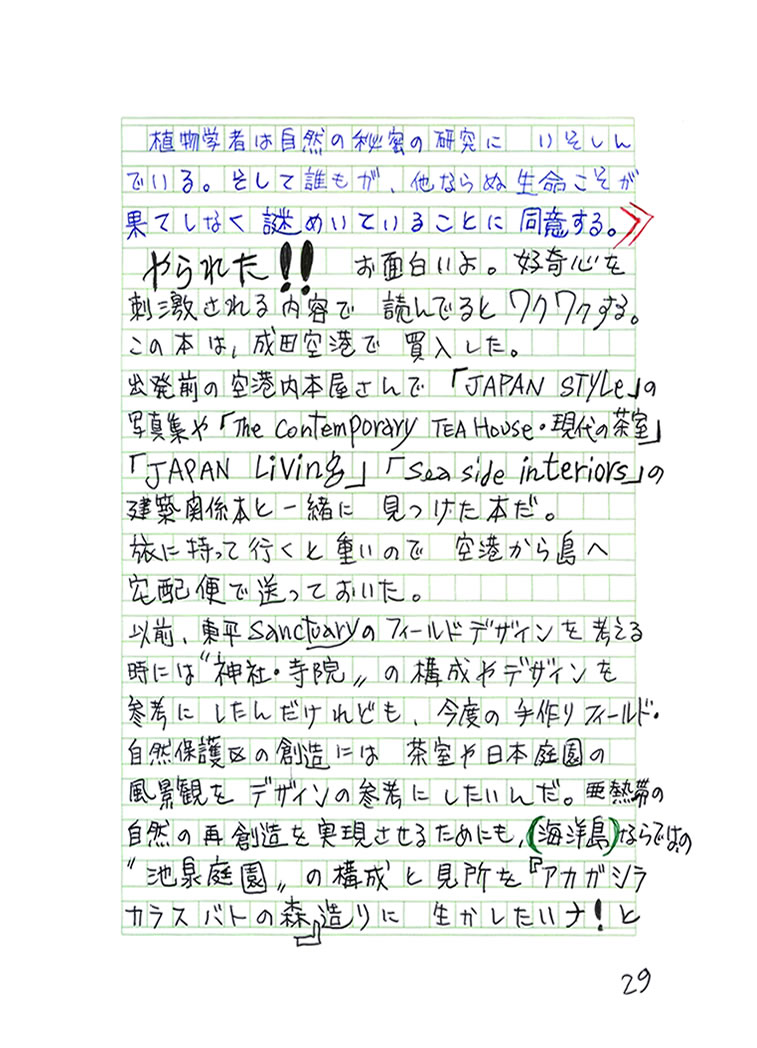 植物学者は自然の秘密の研究に いそしん
でいる。そして誰もが、他ならぬ生命こそが
果てしなく謎めいていることに同意する。》
やられた!! お面白いよ。好奇心を
刺激される内容で 読んでるとワクワクする。
この本は、成田空港で 買入した。
出発前の空港内本屋さんで「JAPAN STYLe」の
写真集や「The contemporary TEA House・現代の茶室」
「JAPAN Living」「sea side interiors」の
建築関係本と一緒に 見つけた本だ。
旅に持って行くと重いので 空港から島へ
宅配便で送っておいた。
以前、東平sanctuaryのフィールドデザインを考える
時には〝神社・寺院〟の構成やデザインを
参考にしたんだけれども、今度の手作りフィールド・
自然保護区の創造には 茶室や日本庭園の
風景観をデザインの参考にしたいんだ。亜熱帯の
自然の再創造を実現させるためにも、(海洋島)ならではの
〝池泉庭園〟の構成と見所を『アカガシラ
カラスバトの森』造りに 生かしたいナ!と
29